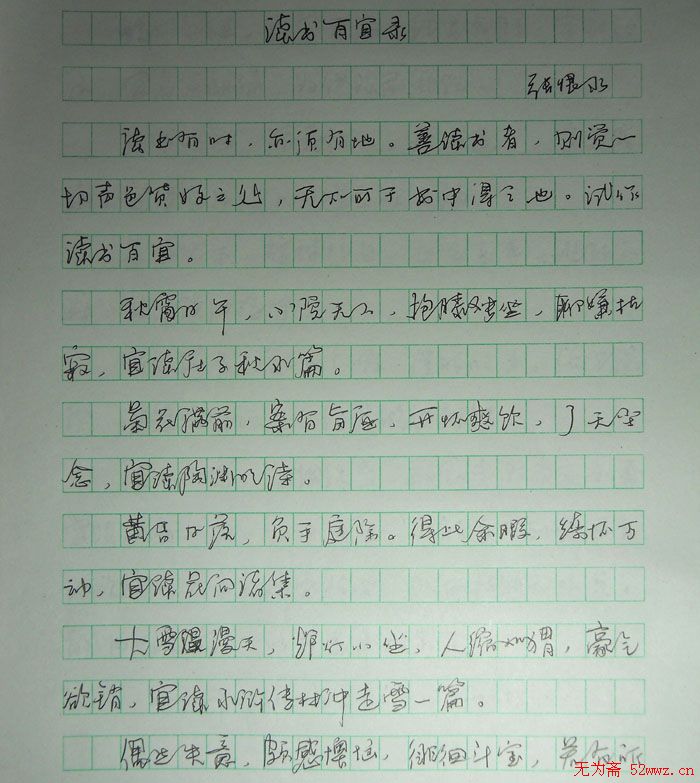 读书百宜录
张恨水
读书有时，亦须有地。善读书者，则觉一
切声色货好之处，无不可于书中得之也。试作
读书百宜。
秋窗日午，小院无人，抱膝独坐，聊嫌枯
寂，宜读庄子秋水篇。
菊花满前，案有旨酒，开怀爽饮，了无尘
念，宜读陶渊明诗。
黄昏日落，负手庭除。得此余暇，绮怀万
动，宜读花间诸集。
大雪漫天，炉灯小坐，人缩如猬，豪气
欲销，宜读水浒传林冲走雪一篇。
偶然失意，颇感懊恼，徘徊斗室，若有所
无为斋 52wwz.cn